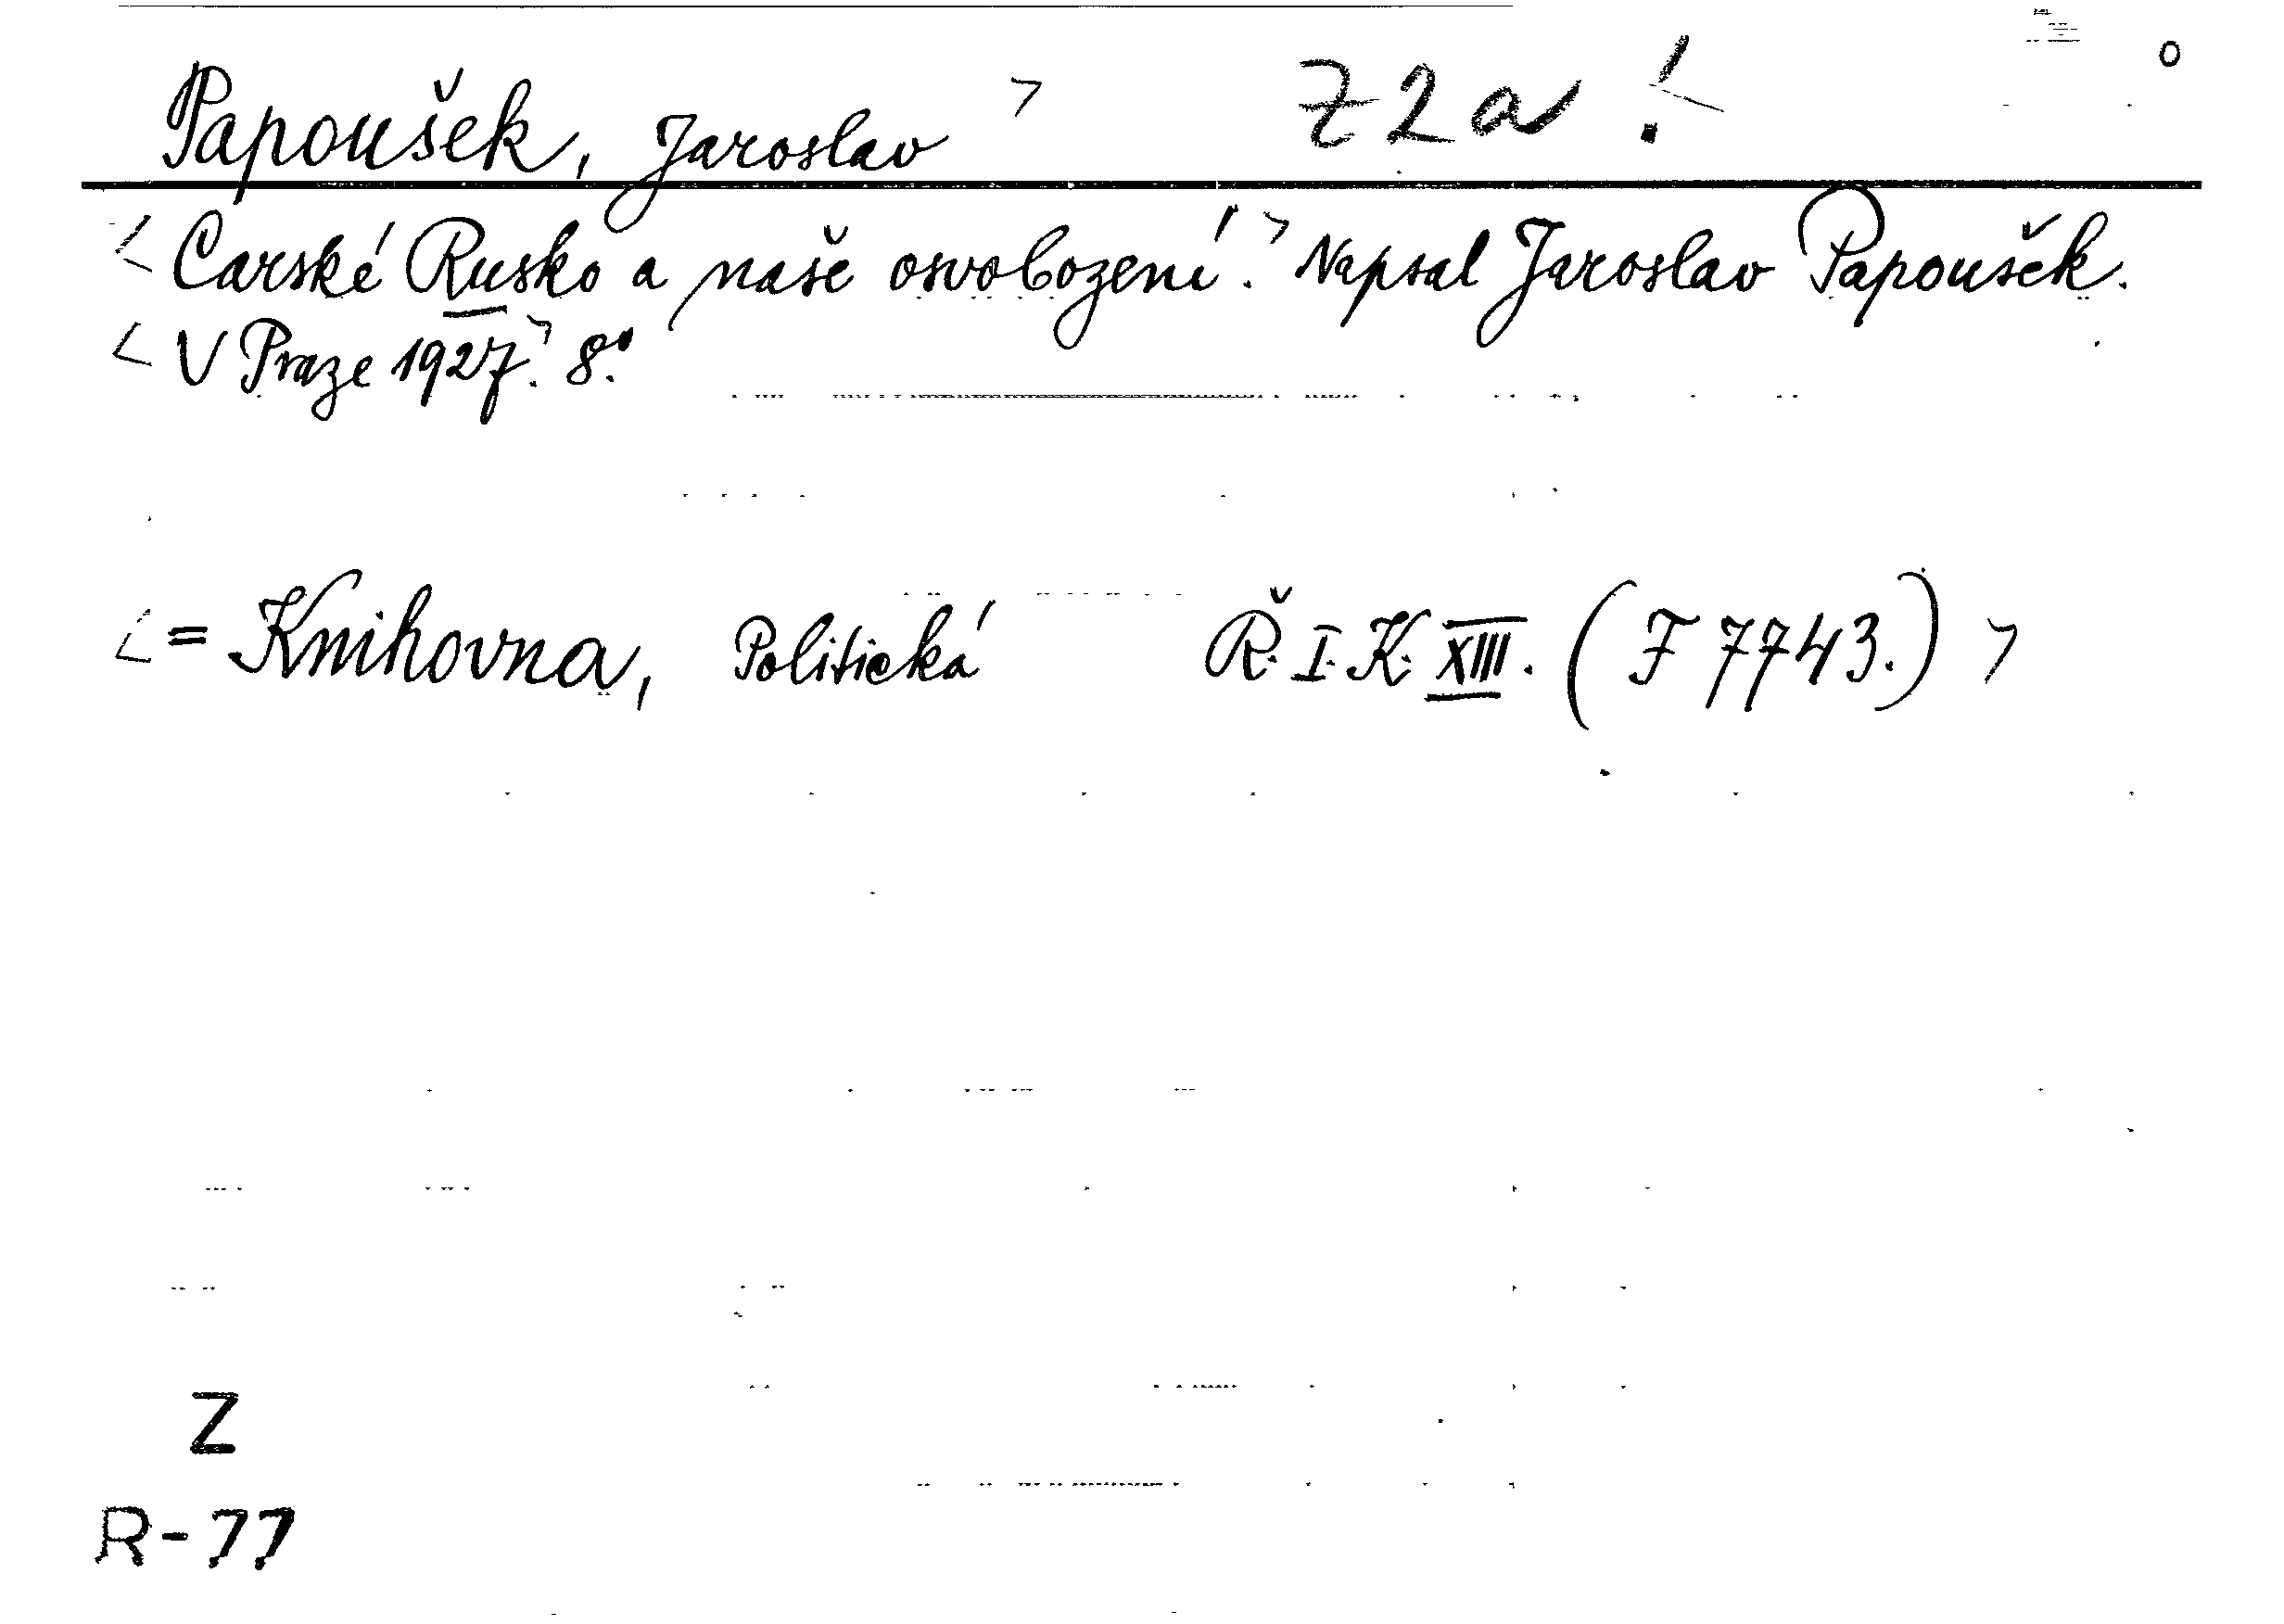 Papoušek, Jaroslav > Z2a! <
< Carské Rusko a naše osvobození. > Napsal Jaroslav Papoušek.
< V Praze 1927. > 8.°
< = Knihovna, Politická Ř. I. K. XIII. (F 7743.) >
Z
R-77